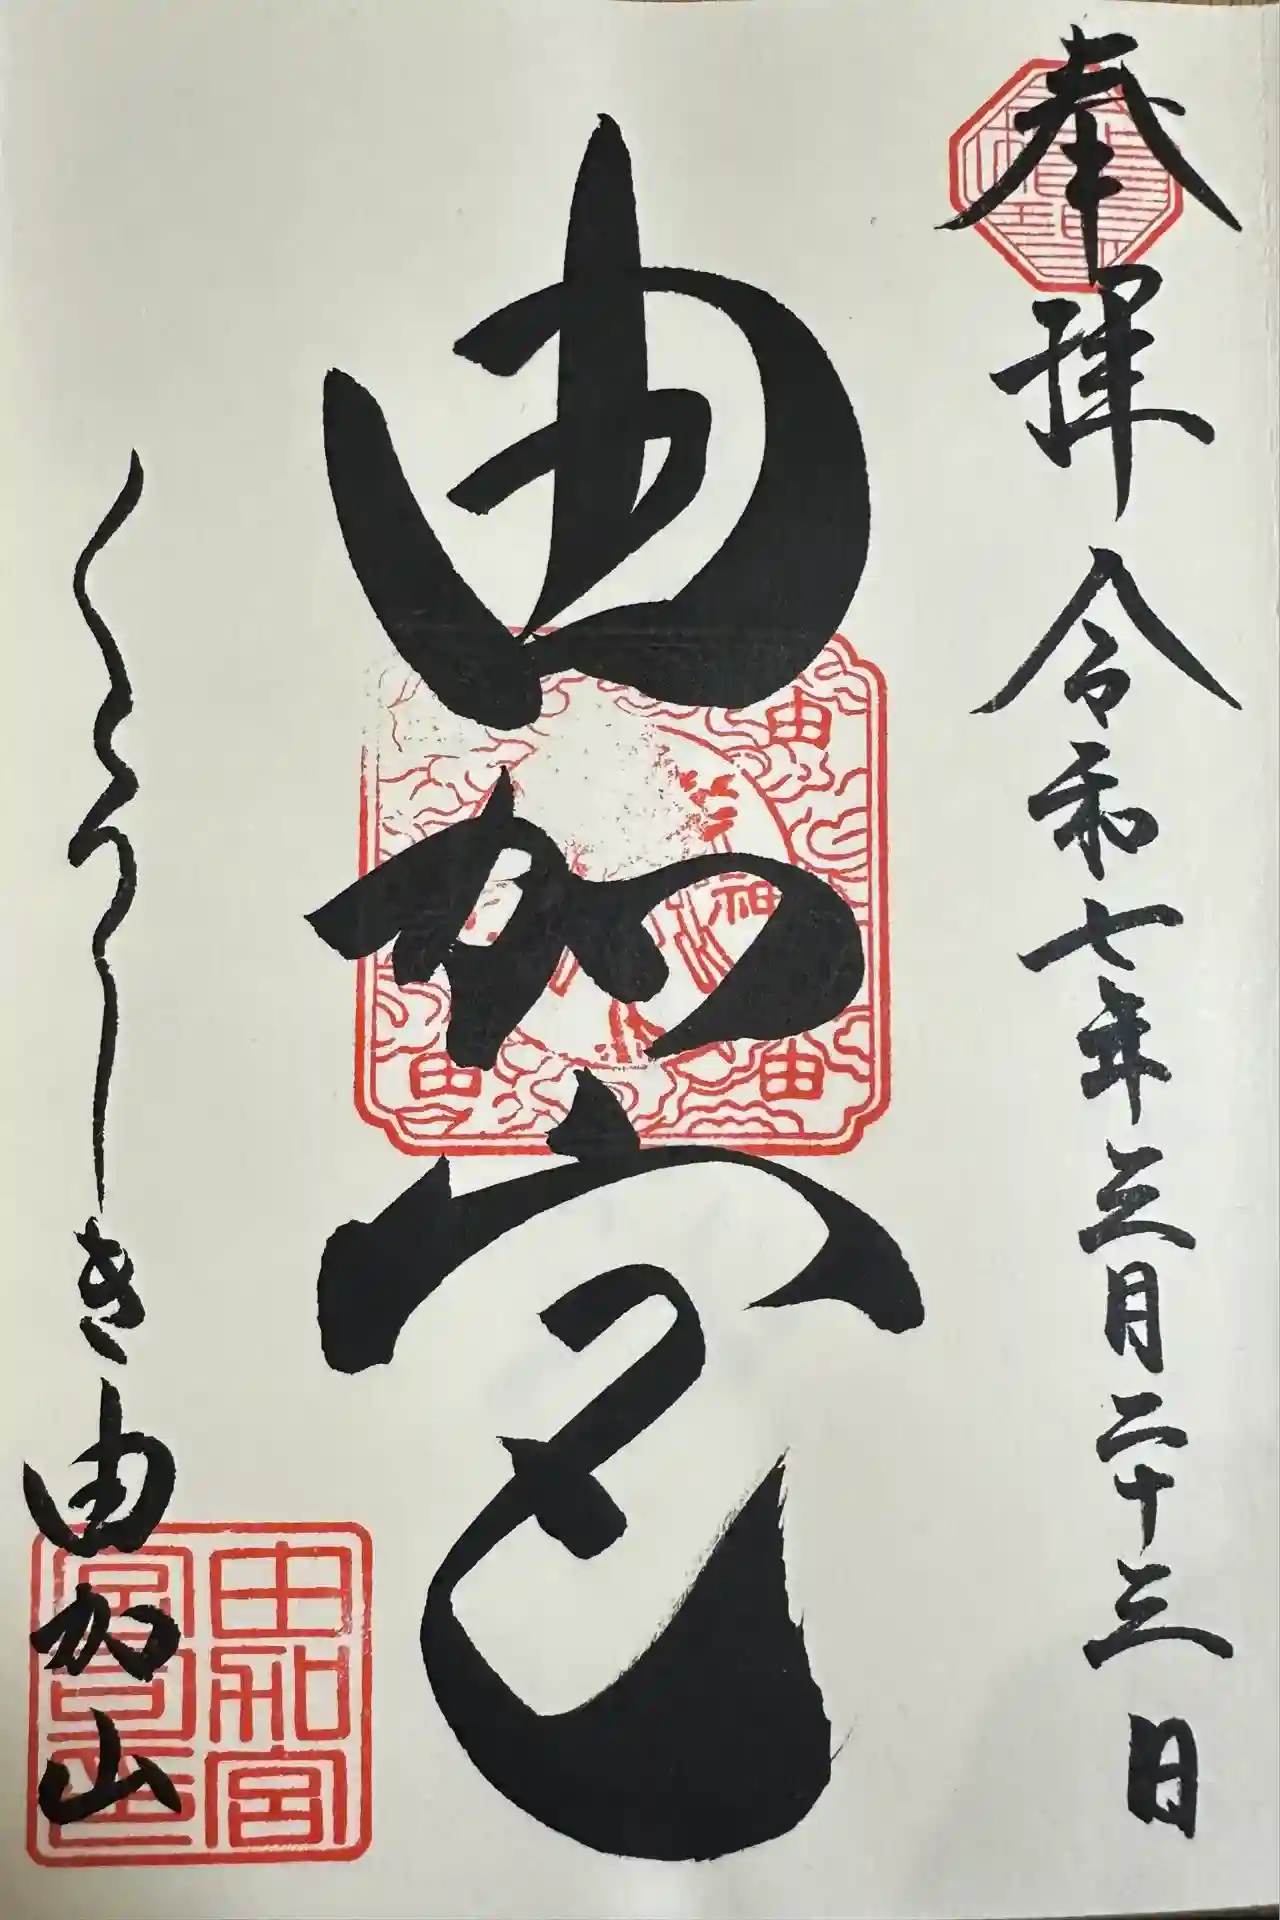 奉拝 令和七年三月二十三日
由加宮
由
神
由
由
くらしき由加山